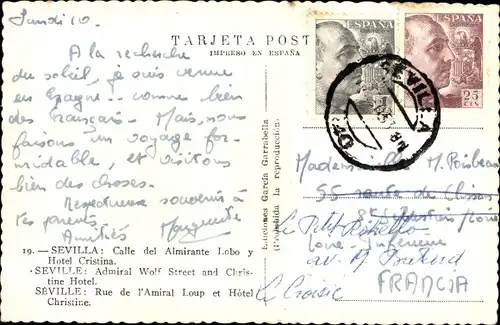 Lundi 10.
TARJETA POST
IMPRESO EN ESPAÑA
A la recherche
du soleil, je suis venue
en Espagne - comme bien
des Français - Mais, nous
faisons un voyage for-
midable, et visitons
bien des choses.
Respectueux souvenir à
tes parents.
Amitiés Marguerite
19. — SEVILLA: Calle del Almirante Lobo y
Hotel Cristina.
- SEVILLE: Admiral Wolf Street and Chris-
tine Hotel.
SÉVILLE: Rue de l'Amiral Loup et Hôtel
Christine.
Ediciones García Garrabella
(Prohibida la reproducción)
ESPAÑA
ESPAÑA
25
CTS
SEVILLA
Mademoiselle M.
55 route de
St
Le Petit
Loire Inférieure
av. M.
Le Croisic
FRANCIA